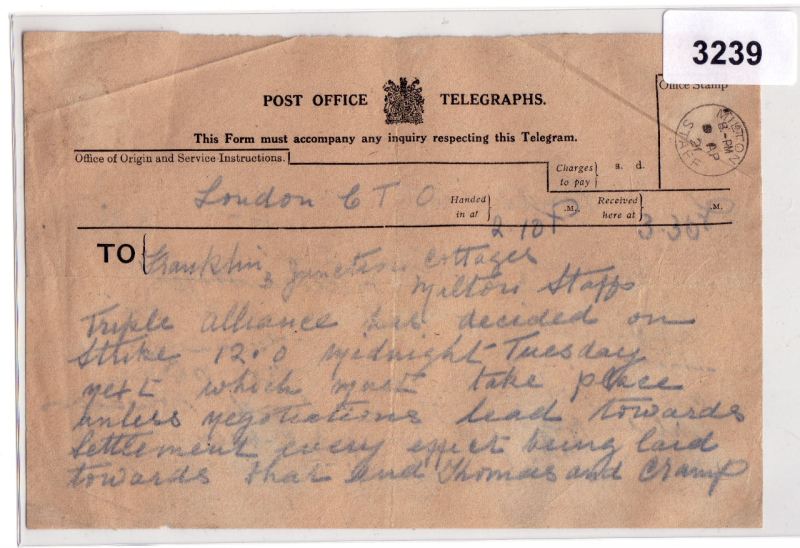 3239
POST OFFICE TELEGRAPHS.
Office Stamp
This Form must accompany any inquiry respecting this Telegram.
MILTON
8-PM
AP
21
STAFF
Office of Origin and Service Instructions.
Charges to pay
s. d.
London C T O
Handed in at
2 10 P
.M.
Received here at
3.30 P
.M.
TO Franklin 3 Junction Cottages
Milton Staffs
Triple alliance has decided on
Strike 12.0 Midnight Tuesday
next which must take place
unless negotiations lead towards
Settlement every effect being laid
towards that end Thomas and Cramp